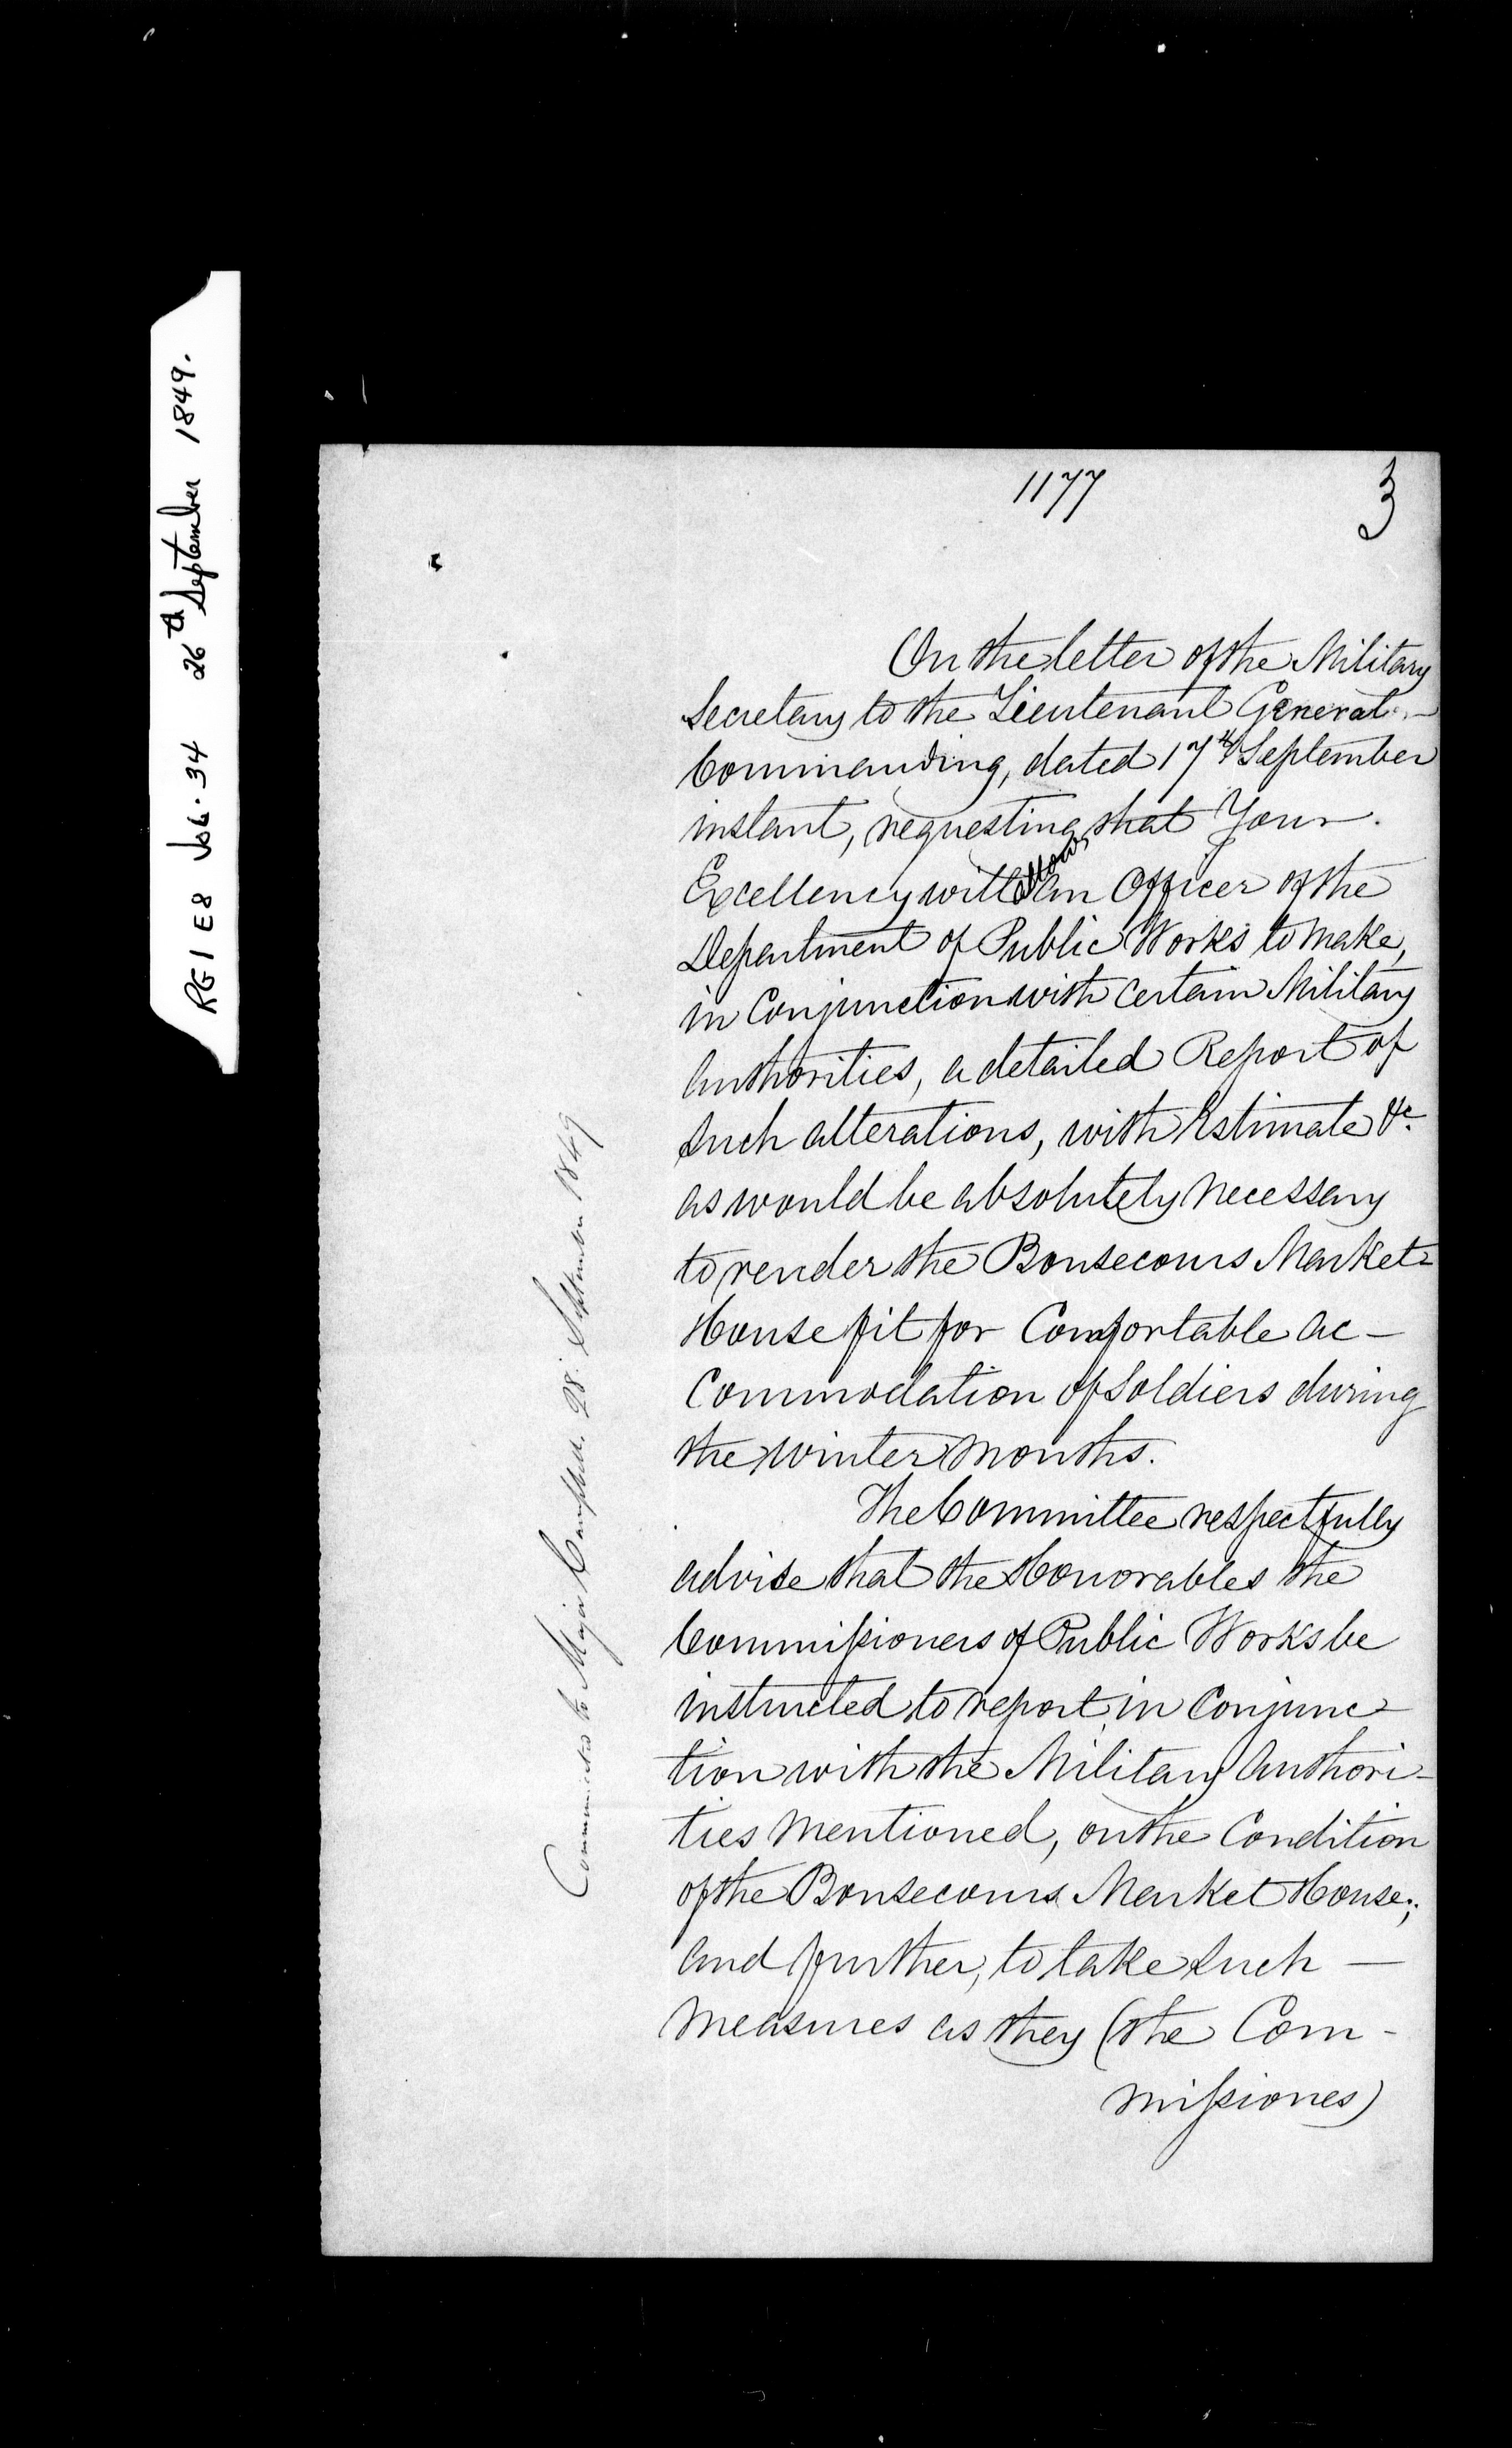 RG 1 E8 Vol. 34 26th September 1849.
1177
3
On the letter of the Military
Secretary to the Lieutenant General —
Commanding, dated 17th September
instant, requesting that Your
Excellency will allow an Officer of the
Department of Public Works to make,
in Conjunction with Certain Military
Authorities, a detailed Report of
such alterations, with Estimate &c
as would be absolutely necessary
to render the Bonsecours Market
House fit for Comfortable Ac-
commodation of Soldiers during
the winter months.
The Committee respectfully
advise that the Honorables the
Commissioners of Public Works be
instructed to report in Conjunc-
tion with the Military Authori-
ties mentioned, on the Condition
of the Bonsecours Market House;
and further, to take such —
measures as they (the Com-
missiones)
to Major Campbell, 28 September 1849